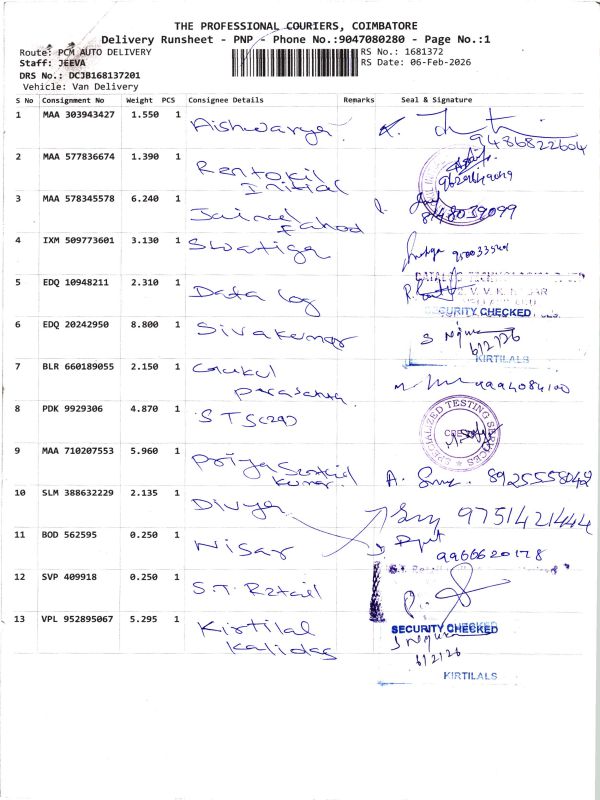 THE PROFESSIONAL COURIERS, COIMBATORE
Delivery Runsheet - PNP - Phone No.:9047080280 - Page No.:1
Route: PCM AUTO DELIVERY
RS No.: 1681372
Staff: JEEVA
RS Date: 06-Feb-2026
DRS No.: DCJB168137201
Vehicle: Van Delivery
S No Consignment No Weight PCS Consignee Details Remarks Seal & Signature
1 MAA 303943427 1.550 1 Aishwarya 9486822604
2 MAA 577836674 1.390 1 Rentokil
Initial
3 MAA 578345578 6.240 1 Jaineel 8148039099
Fahad
4 IXM 509773601 3.130 1 Swatiga
5 EDQ 10948211 2.310 1 Data log
SECURITY CHECKED
6 EDQ 20242950 8.800 1 Sivakumar 6/2/26
KIRTILALS
7 BLR 660189055 2.150 1 Gokul
8 PDK 9929306 4.870 1 STS(29) SPECIALIZED TESTING SERVICES
9 MAA 710207553 5.960 1 Priya
Kumar 8925558042
10 SLM 388632229 2.135 1 Divya 9751421444
11 BOD 562595 0.250 1 Nisar
12 SVP 409918 0.250 1 S.T. Retail
13 VPL 952895067 5.295 1 Kirtilal SECURITY CHECKED
Kalidas 6/2/26
KIRTILALS